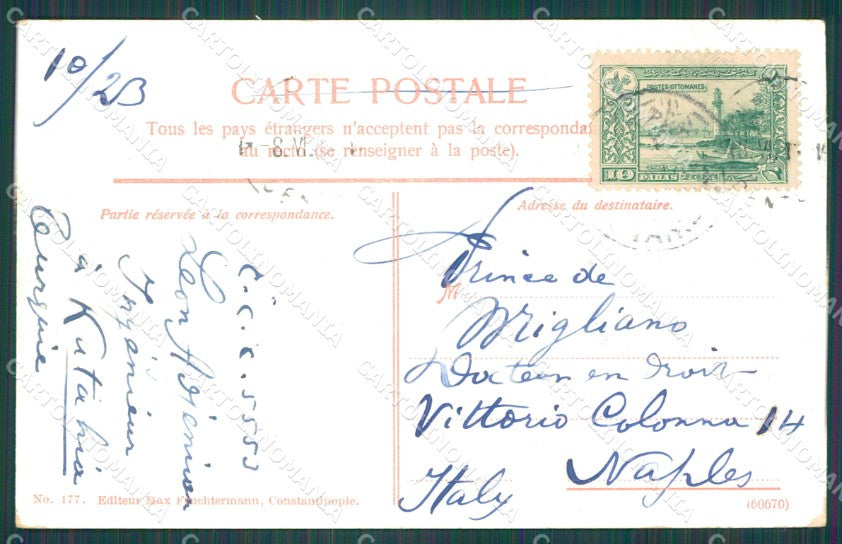 10/2B
CARTE POSTALE
Tous les pays étrangers n'acceptent pas la corresponda
au recto (se renseigner à la poste).
POSTES OTTOMANES
10 PARAS
Partie réservée à la correspondance.
Adresse du destinataire.
C.C.C. 5553
Léon
Ingénieur
à Kutahia
Turquie
M
Prince de
Docteur en Droit
Vittorio Colonna 14
Naples
Italy
No. 177. Editeur Max Fruchtermann, Constantinople.
(60670)
CARTOLINOMANIA